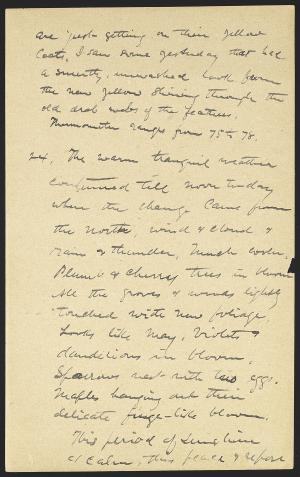 are just getting on their yellow
coats, I saw some yesterday that had
a smutty, unwashed look from
the new yellow shining through the
old drab webs of the feathers.
Thermometer ranges from 75 to 78.
24, The warm tranquil weather
continued till noon to-day
when the change came from
the north, wind & cloud &
rain & thunder, Much cooler.
Plumb & cherry trees in bloom
All the groves & woods lightly
touched with new foliage.
Looks like May, Violets &
dandelions in bloom,
Sparrows nest with two eggs.
Maples hanging out their
delicate fringe-like bloom.
This period of sunshine
& calm, this peace & repose